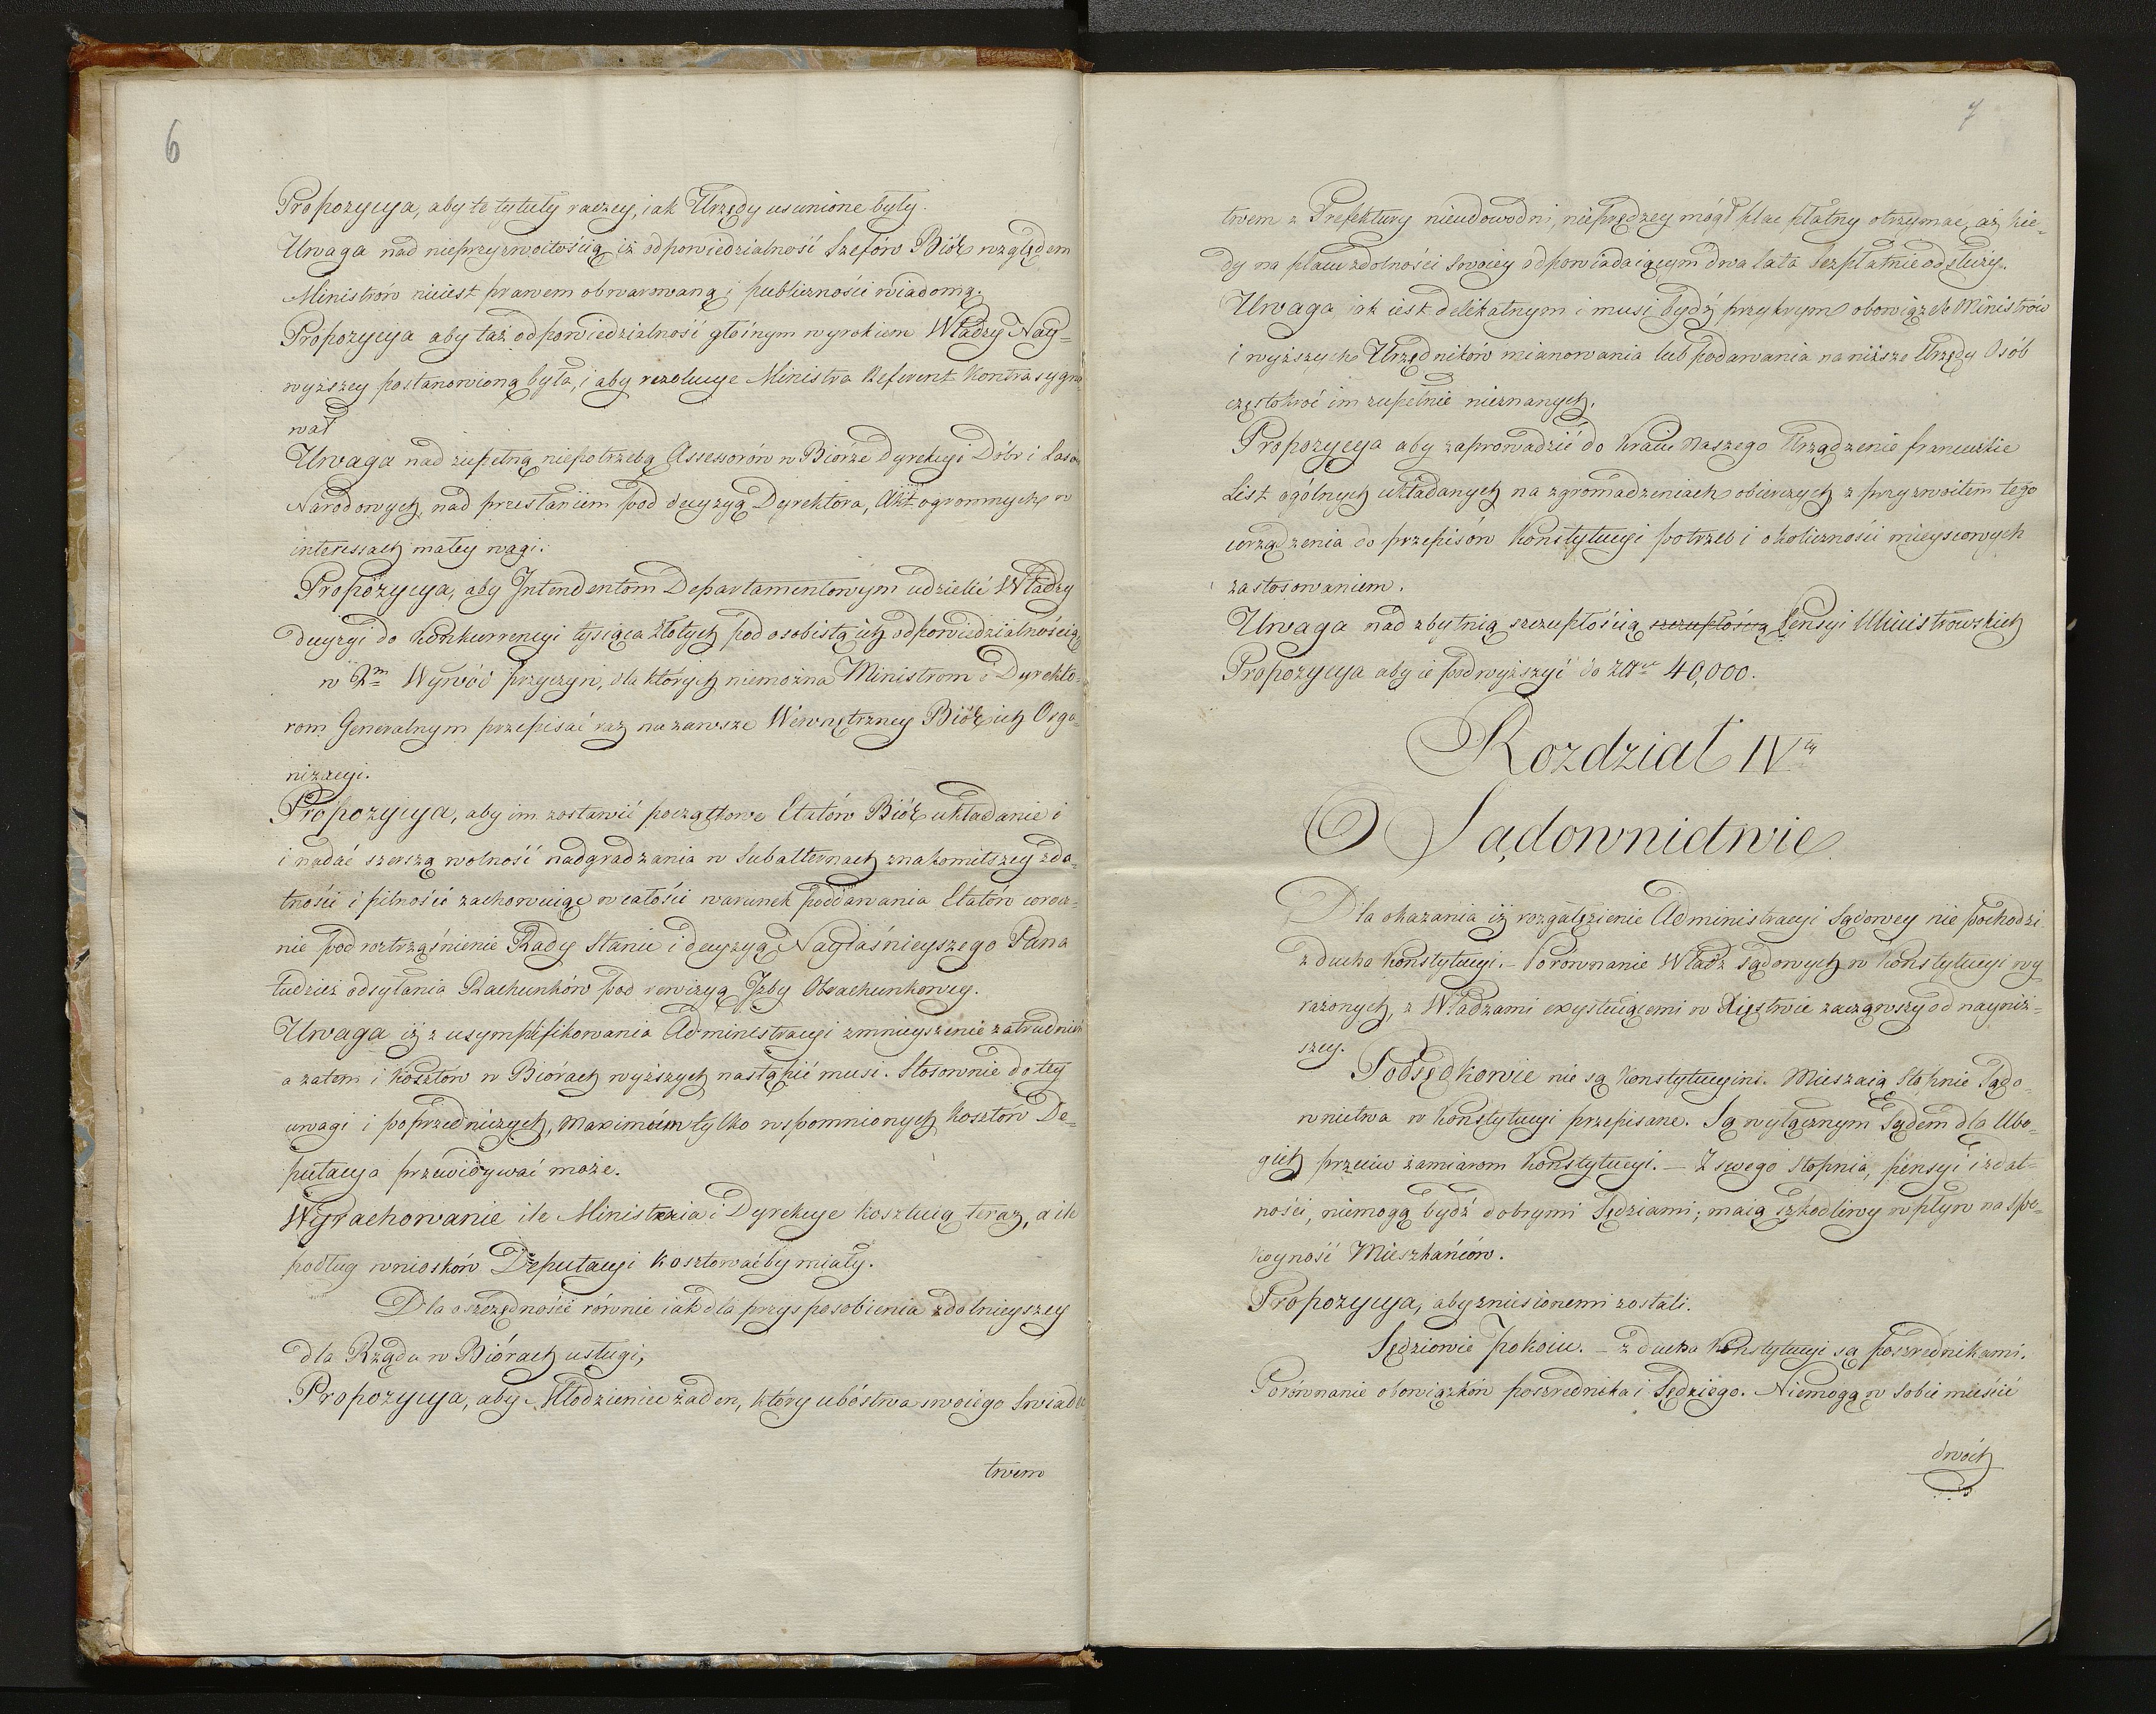 6
Propozycya, aby te tytuły raczey, iak Urzędy usunione były.
Uwaga nad nieprzyzwoitością iż odpowiedzialność Szefów Biór względem
Ministrów nieiest prawem obwarowaną i publiczności wiadomą.
Propozycya aby taż odpowiedzialność głośnym wyrokiem Władzy Nay=
wyższey postanowioną była, i aby rezolucye Ministra Referent Kontrasygno
wał
Uwaga nad zupełną niepotrzebą Assessorów w Biórze Dyrekcyi Dóbr i Lasow
Narodowych, nad przesłaniem pod decyzyą Dyrektora, Akt ogromnych w
interessach małey wagi.
Propozycya, aby Intendentom Departamentowym udzielić Władzy
decyzyi do Konkurrencyi tysiąca Złotych pod osobistą ich odpowiedzialnością
w 2m Wywód przyczyn, dla których niemożna Ministrom i Dyrekto=
rom Generalnym przepisać raz na zawsze Wewnętrzney Biór ich Orga=
nizacyi.
Propozycya, aby im zostawić początkowe Etatów Biór układanie i
i nadać szerszą wolność nadgradzania w Subalternach znakomitszey zda=
tności i pilności zachowuiąc w całości warunek poddawania Etatów coroz=
nie pod roztrząśnienie Rady Stanu i decyzyą Nayiaśnieyszego Pana
tudzież odsyłania Rachunków pod rewizyą Izby Obrachunkowey.
Uwaga iż z usymplifikowania Administracyi zmnieyszenie zatrudnień
a zatem i Kosztów w Biórach wyższych nastąpić musi. Stosownie do tey
uwagi i poprzedniczych, maximum tylko wspomnionych kosztów De=
putacya przewidywać może.
Wyrachowanie ile Ministeria i Dyrekcye kosztuią teraz, a ile
podług wniosków Deputacyi kosztowaćby miały.
Dla oszczędności równie iak dla przysposobienia zdolnieyszey
dla Rządu w Biórach usługi,
Propozycya, aby Młodzieniec żaden, który ubóstwa swoiego Swiadec
twem
7
twem z Prefektury nieudowodni, nieprędzey mógł plac płatny otrzymac, aż kie=
dy na placu zdolności swoiey odpowiadaiącym dwa lata bezpłatnie odsłuży.
Uwaga iak iest delikatnym i musi bydź przykrym obowiązek Ministrów
i wyższych Urzędników mianowania lub podawania na niższe Urzędy Osób
częstokroć im zupełnie nieznanych.
Propozycya aby zaprowadzić do Kraiu Naszego Urządzenie francuzkie
List ogólnych układanych na zgromadzeniach obierczych z przyzwoitem tego
urządzenia do przepisów Konstytucyi potrzeb i okoliczności mieyscowych
zastosowaniem.
Uwaga nad zbytnią szczupłością szczupłością Pensyi Ministrowskich
Propozycya aby ie podwyższyć do Złł. 40,000.
Rozdział IVty
O Sądownictwie
Dla okazania iż rozgałęzienie Administracyi Sądowey nie pochodzi
z ducha Konstytucyi. – Porównanie Władz sądowych w Konstytucyi wy
rażonych, z Władzami exystuiącemi w Xięstwie zacząwszy od nayniż=
szey.
Podsędkowie nie są Konstytucyini. Mieszaią Stopnie Sądo
wnictwa w Konstytucyi przepisane. Są wyłącznym Sądem dla Ubo=
gich przeciw zamiarom Konstytucyi. – Z swego Stopnia, pensyi i zdat=
ności, niemogą bydź dobrymi Sędziami; maią szkodliwy wpływ na Spo=
koyność Mieszkańców.
Propozycya, aby zniesionemi zostali.
Sędziowie Pokoiu. – z ducha Konstytucyi są poszrednikami.
Porównanie obowiązków poszrednika i Sędziego. Niemogą w Sobie mieścić
dwóch